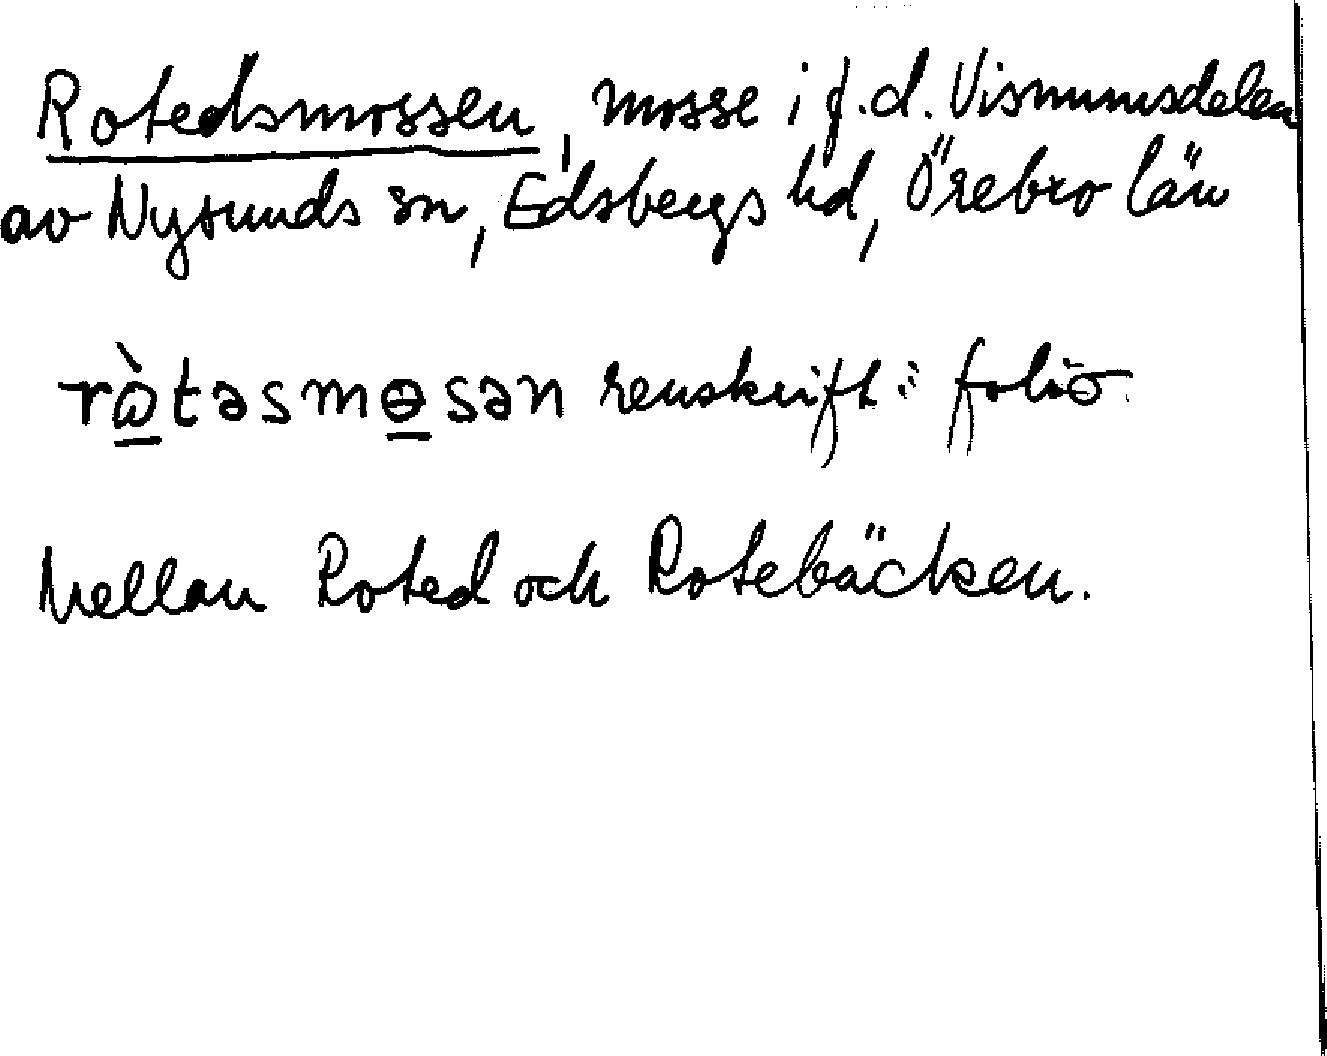 Rotedsmossen, mosse i f.d. Visnumsdelen
av Nysunds sn, Edsbergs hd, Örebro län
rὼtəsmɵsən renskrift: folio.
Mellan Roted och Rotebäcken.